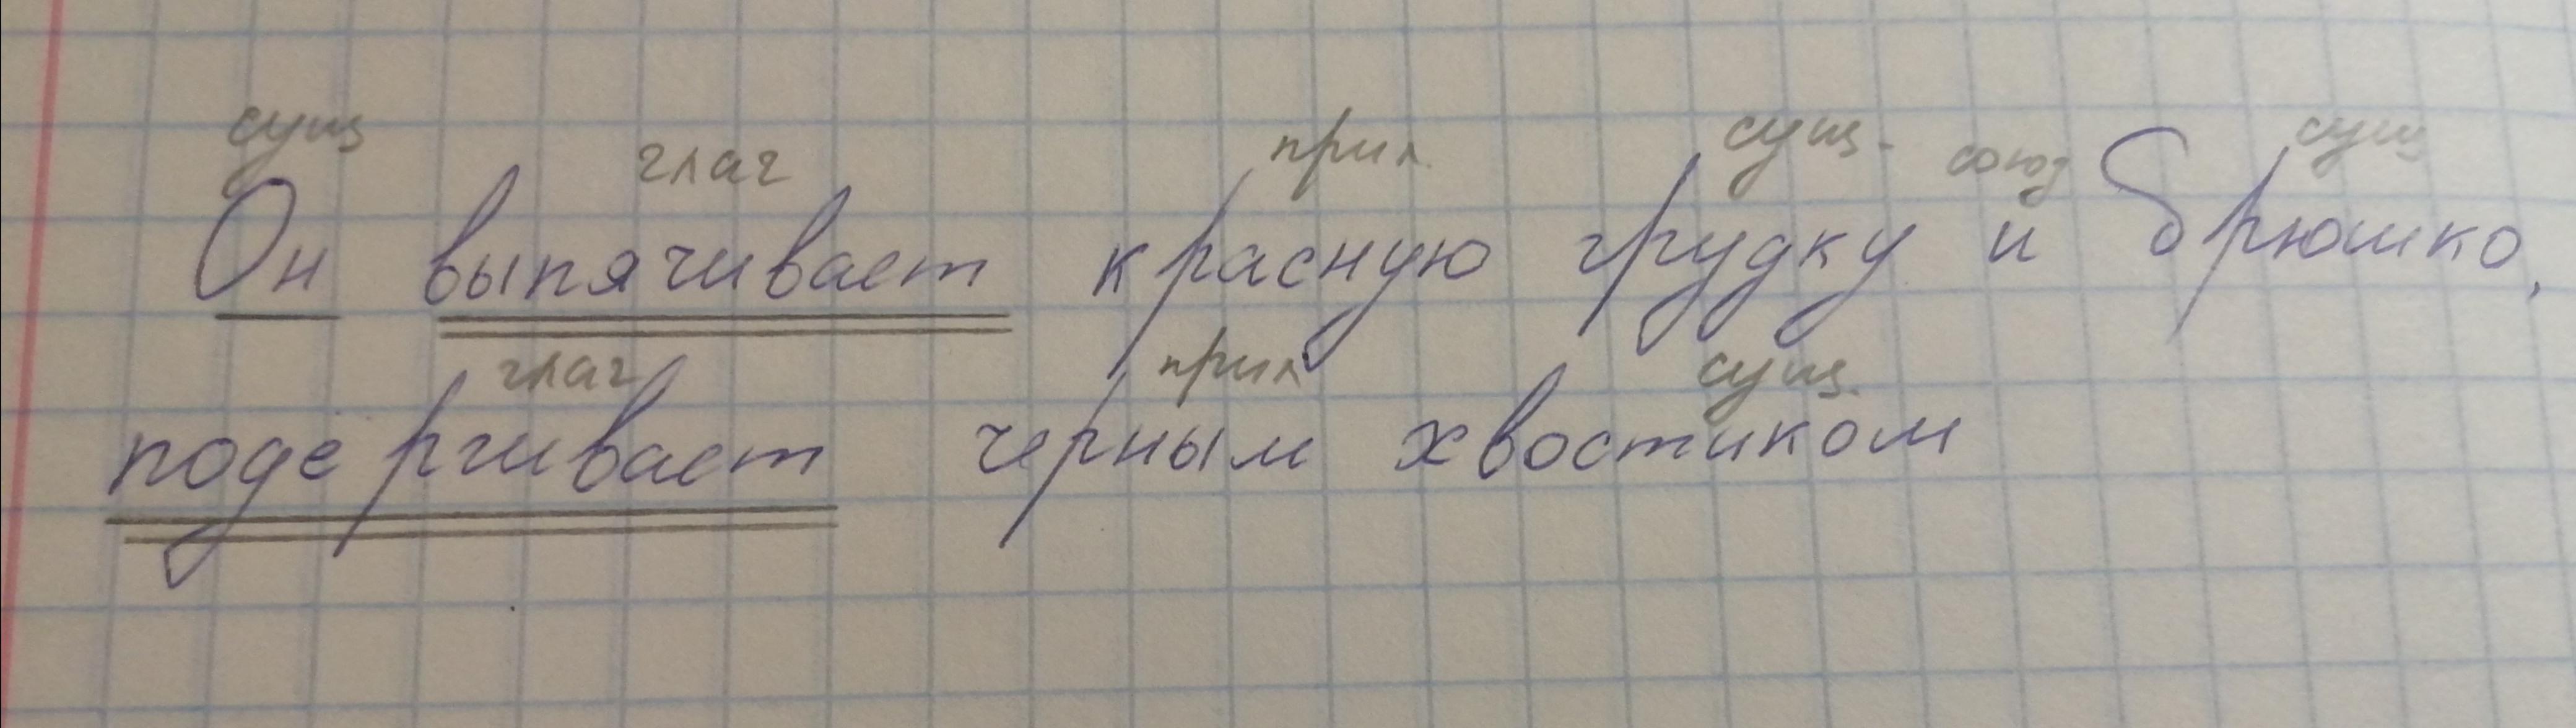 сущ глаг прил. сущ. союз сущ
Он выпячивает красную грудку и брюшко,
глаг прил сущ.
подергивает черным хвостиком